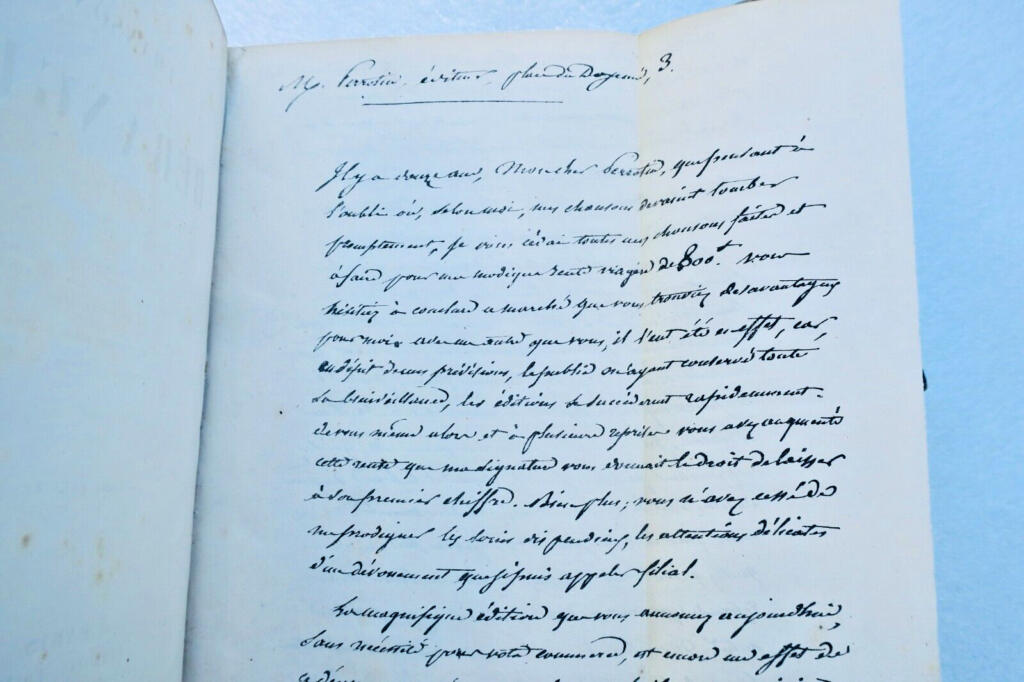 Mr. Perrotin, éditeur, place du Doyenné, 3.
Il y a douze ans, mon cher Perrotin, que pensant à
l'oubli où, selon moi, mes chansons devaient tomber
promptement, je vous cédai toutes mes chansons faites et
à faire pour une modique rente viagère de 800f. Vous
hésitiez à conclure ce marché que vous trouviez désavantageux
pour moi. avec un autre que vous, il l'eut été en effet, car,
en dépit de mes prévisions, le public m'ayant conservé toute
sa bienveillance, les éditions se succéderent rapidement.
de vous même alors et à plusieurs reprises vous avez augmenté
cette rente que ma signature vous donnait le droit de laisser
à son premier chiffre. Bien plus; vous n'avez cessé de
me prodiguer les soins dispendieux, les attentions délicates
d'un dévouement que je puis appeler filial.
La magnifique édition que vous annoncez aujourd'hui,
sans nécessité pour votre commerce, est encore un effet de